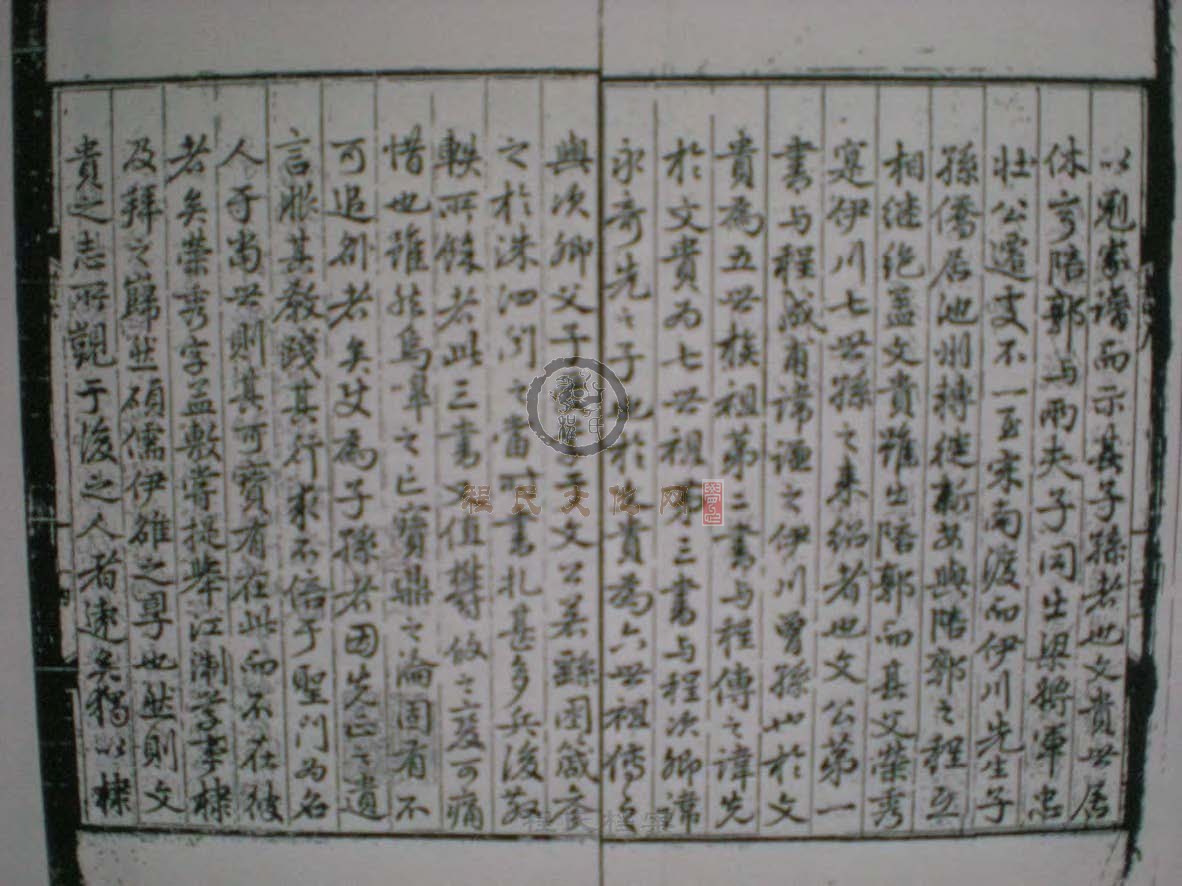 以冠家譜而示其子孫者也文貴世居
休寧陪郭与兩夫子同出梁將軍忠
壯公遷支不一至宋南渡而伊川先生子
孫僑居池州轉徙新安與陪郭之程互
相继绝盖文貴雖出陪郭而其父榮秀
寔伊川七世孫之来紹者也文公第一
書与程成甫諱谨之伊川曾孫也於文
貴為五世族祖第二書与程傅之諱先
於文貴为七世祖第三書与程次卿諱
永奇先之子也於文貴為六世祖傅之
與次卿父子
文公若繇囦箴参
之於洙泗
書扎甚多兵後散
軼所餘者此三書
值鬱攸之灾可痛
惜也雖然烏
之亡寶鼎之淪固有不
可追
者矣故為子孫者因先正之遺
言服其教践其行求不倍于聖門为名
人于當世則其可寶者在此而不在彼
者矣榮秀字孟敷嘗提举江浙学事棣
及拜之巋然碩儒伊雒之専也然则文
貴之志所觀于後之人者遠矣獨以棣
程氏文化网